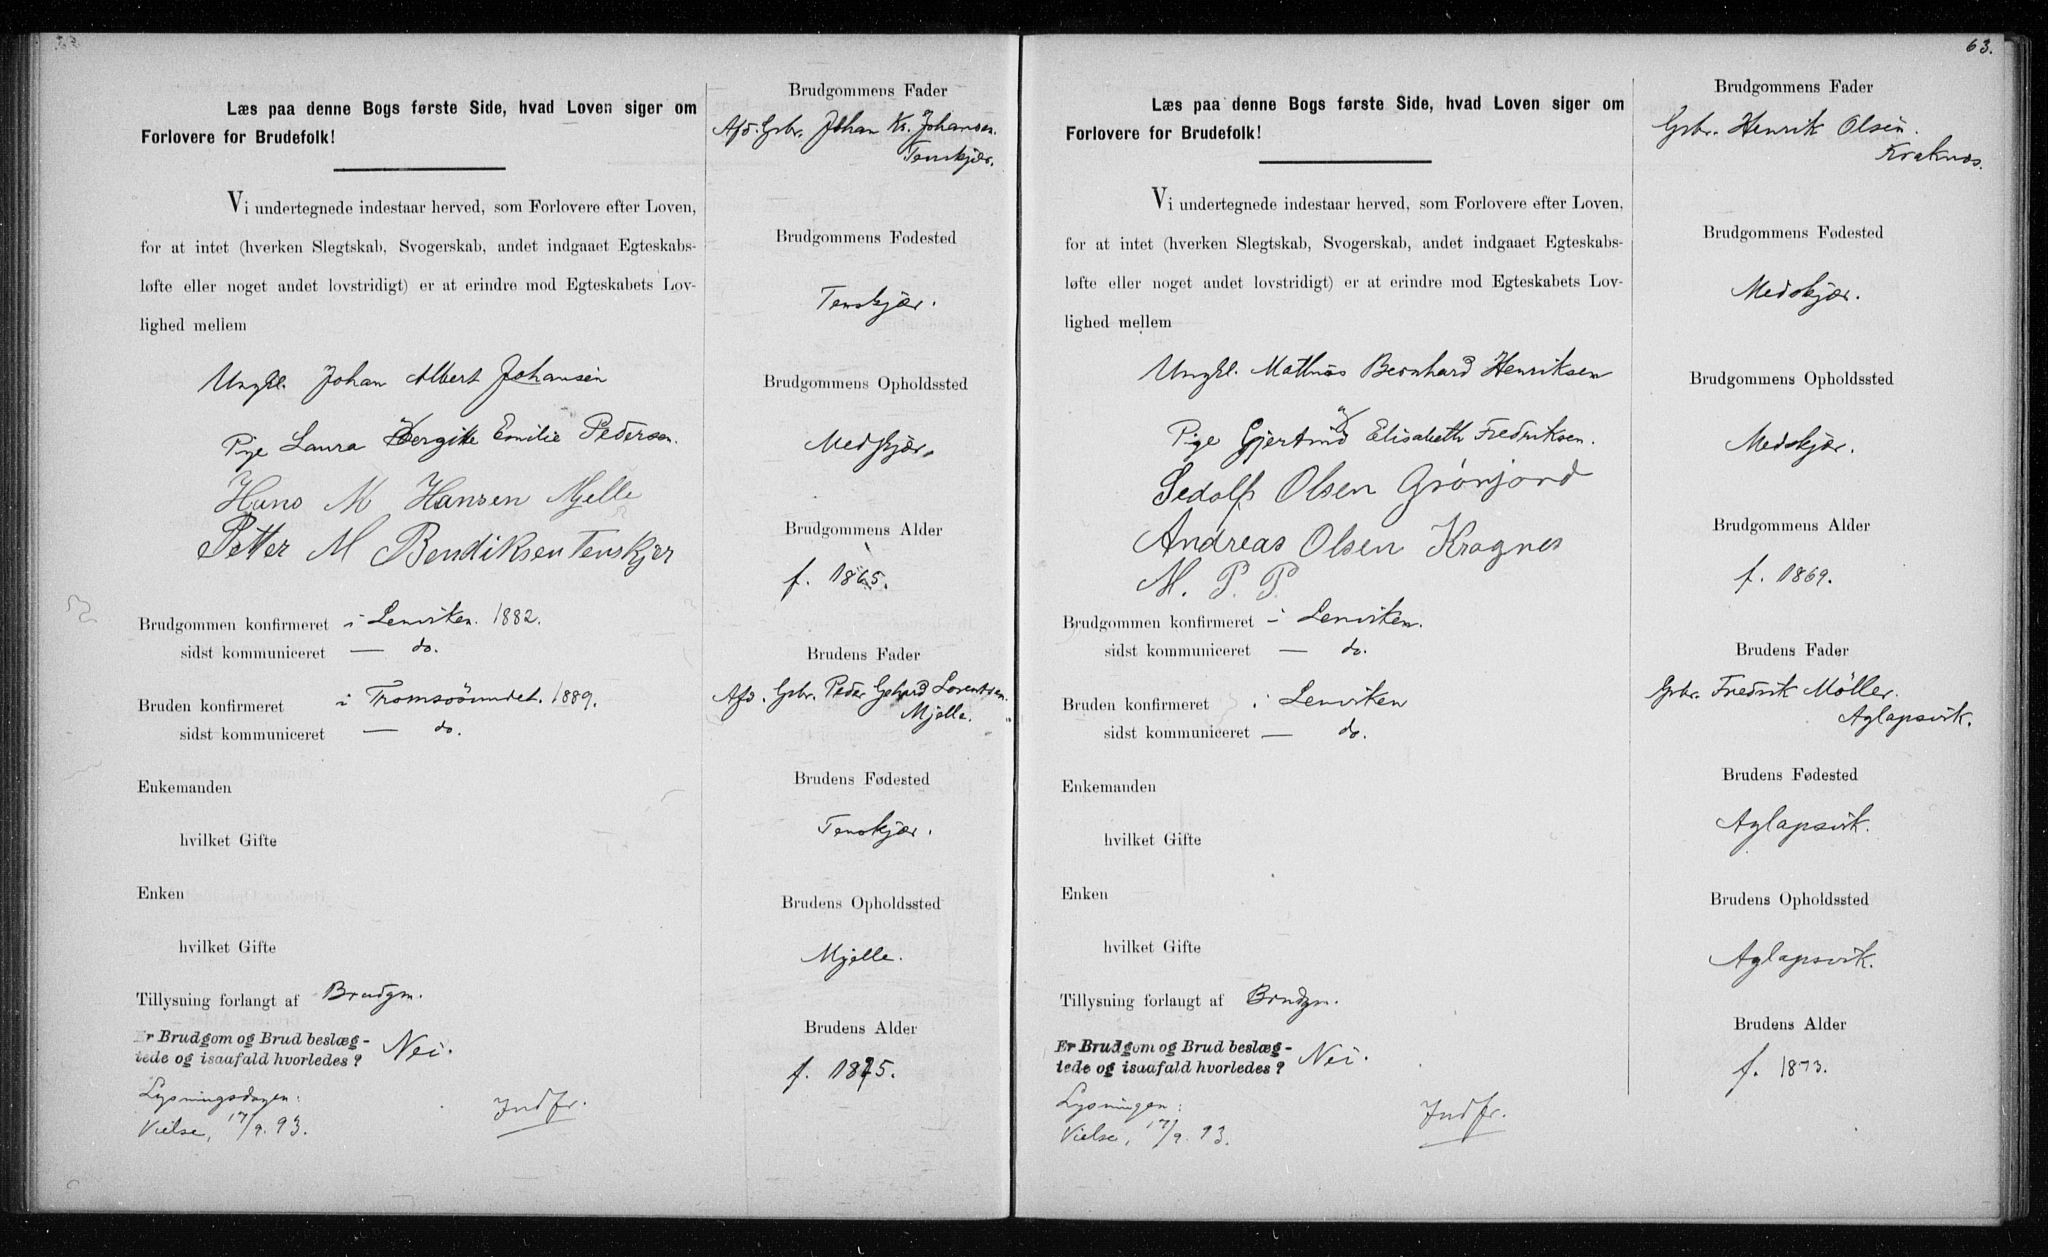 Læs paa denne Bogs første Side, hvad Loven siger om
Forlovere for Brudefolk!
Vi undertegnede indestaar herved, som Forlovere efter Loven,
for at intet (hverken Slegtskab, Svogerskab, andet indgaaet Egteskabs-
løfte eller noget andet lovstridigt) er at erindre mod Egteskabets Lov-
lighed mellem
Ungkl. Johan Albert Johansen
Pige Laura Bergitte Emilie Pedersen.
Hans M Hansen Mjelle
Petter M Bendiksen Tenskjer
Brudgommen konfirmeret i Lenviken. 1882.
sidst kommuniceret — do.
Bruden konfirmeret i Tromsøsundet. 1889.
sidst kommuniceret — do.
Enkemanden
hvilket Gifte
Enken
hvilket Gifte
Tillysning forlangt af Brudgm.
Er Brudgom og Brud beslæg-
tede og isaafald hvorledes? Nei.
Lysningsdagen:
Vielse, 17/9. 93.
Indfr.
Brudgommens Fader
Afd. Gbr. Johan Kr. Johansen.
Tenskjær.
Brudgommens Fødested
Tenskjær.
Brudgommens Opholdssted
Medskjær.
Brudgommens Alder
f. 1865.
Brudens Fader
Afd. Gbr. Peder Gerhard Lorentsen.
Mjelle.
Brudens Fødested
Tenskjær.
Brudens Opholdssted
Mjelle.
Brudens Alder
f. 1875.
63.
Læs paa denne Bogs første Side, hvad Loven siger om
Forlovere for Brudefolk!
Vi undertegnede indestaar herved, som Forlovere efter Loven,
for at intet (hverken Slegtskab, Svogerskab, andet indgaaet Egteskabs-
løfte eller noget andet lovstridigt) er at erindre mod Egteskabets Lov-
lighed mellem
Ungkl. Mathias Bernhard Henriksen
og
Pige Gjertrud Elisabeth Fredriksen.
Sedolf Olsen Grønjord
Andreas Olsen Kragnes
M. P. P.
Brudgommen konfirmeret i Lenviken.
sidst kommuniceret — do.
Bruden konfirmeret i Lenviken
sidst kommuniceret — do.
Enkemanden
hvilket Gifte
Enken
hvilket Gifte
Tillysning forlangt af Brudgm.
Er Brudgom og Brud beslæg-
tede og isaafald hvorledes? Nei.
Lysningen:
Vielse, 17/9. 93.
Indfr.
Brudgommens Fader
Gbr. Henrik Olsen.
Kraknæs.
Brudgommens Fødested
Medskjær.
Brudgommens Opholdssted
Medskjær.
Brudgommens Alder
f. 1869.
Brudens Fader
Gbr. Fredrik Möller.
Aglapsvik.
Brudens Fødested
Aglapsvik.
Brudens Opholdssted
Aglapsvik.
Brudens Alder
f. 1873.